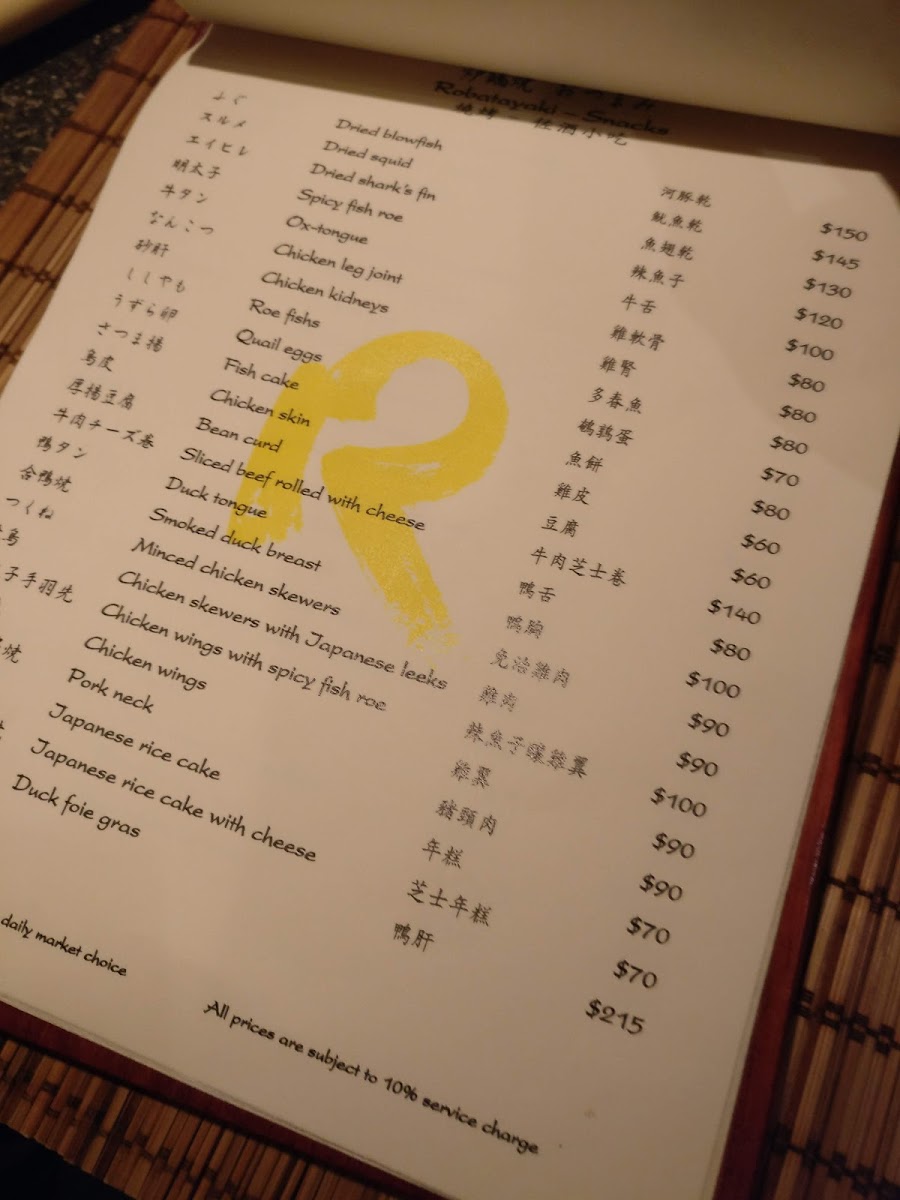 Robatayaki – Snacks
燒烤 – 佐酒小吃
ふぐ Dried blowfish 河豚乾 $150
スルメ Dried squid 魷魚乾 $145
エイヒレ Dried shark's fin 魚翅乾 $130
明太子 Spicy fish roe 辣魚子 $120
牛タン Ox-tongue 牛舌 $100
なんこつ Chicken leg joint 雞軟骨 $80
砂肝 Chicken kidneys 雞腎 $80
ししゃも Roe fishs 多春魚 $80
うずら卵 Quail eggs 鵪鶉蛋 $70
さつま揚 Fish cake 魚餅 $80
鳥皮 Chicken skin 雞皮 $60
厚揚豆腐 Bean curd 豆腐 $60
牛肉チーズ巻 Sliced beef rolled with cheese 牛肉芝士卷 $140
鴨タン Duck tongue 鴨舌 $80
合鴨焼 Smoked duck breast 鴨胸 $100
つくね Minced chicken skewers 免治雞肉 $90
鳥 Chicken skewers with Japanese leeks 雞肉 $90
子手羽先 Chicken wings with spicy fish roe 辣魚子釀雞翼 $100
Chicken wings 雞翼 $90
焼 Pork neck 豬頸肉 $90
Japanese rice cake 年糕 $70
Japanese rice cake with cheese 芝士年糕 $70
Duck foie gras 鴨肝 $215
daily market choice
All prices are subject to 10% service charge